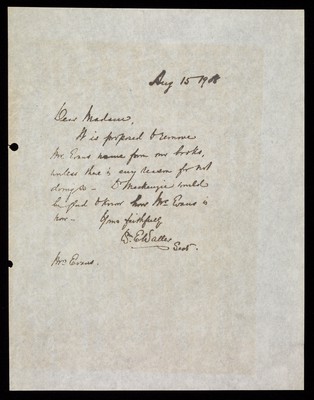 Aug 15 1908
Dear Madam,
It is proposed to remove
Mr Evans name from our books,
unless there is any reason for not
doing so - Dr Mackenzie would
be glad to know how Mr Evans is
now - Yours faithfully
E Waller
Sect.
Mrs Evans.